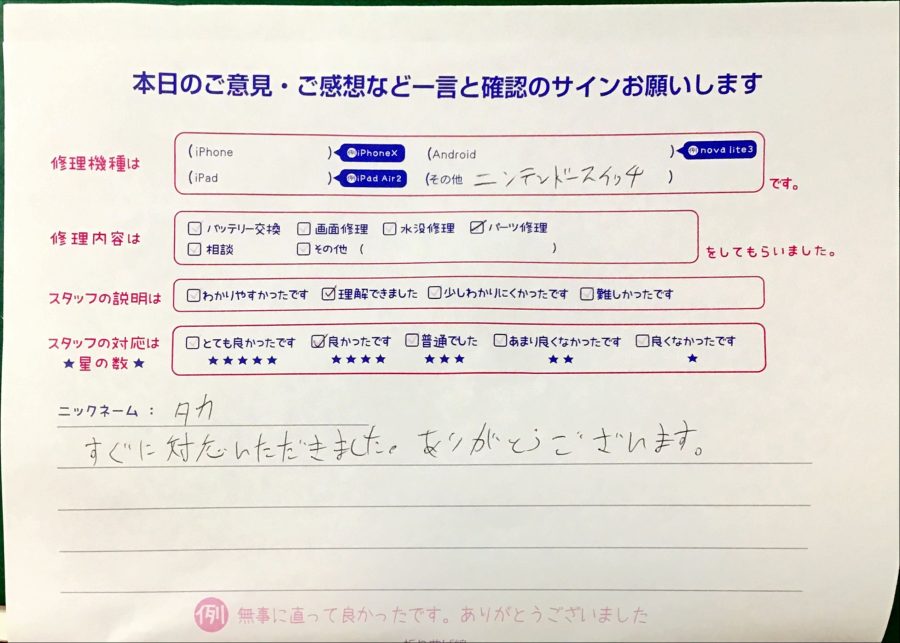 本日のご意見・ご感想など一言と確認のサインお願いします
修理機種は (iPhone )例iPhoneX (Android )例nova lite3
(iPad )例iPad Air2 (その他 ニンテンドースイッチ ) です。
修理内容は バッテリー交換 画面修理 水没修理 パーツ修理
相談 その他 ( ) をしてもらいました。
スタッフの説明は わかりやすかったです 理解できました 少しわかりにくかったです 難しかったです
スタッフの対応は とても良かったです 良かったです 普通でした あまり良くなかったです 良くなかったです
★星の数★ ★★★★★ ★★★★ ★★★ ★★ ★
ニックネーム： タカ
すぐに対応いただきました。ありがとうございます。
例 無事に直って良かったです。ありがとうございました